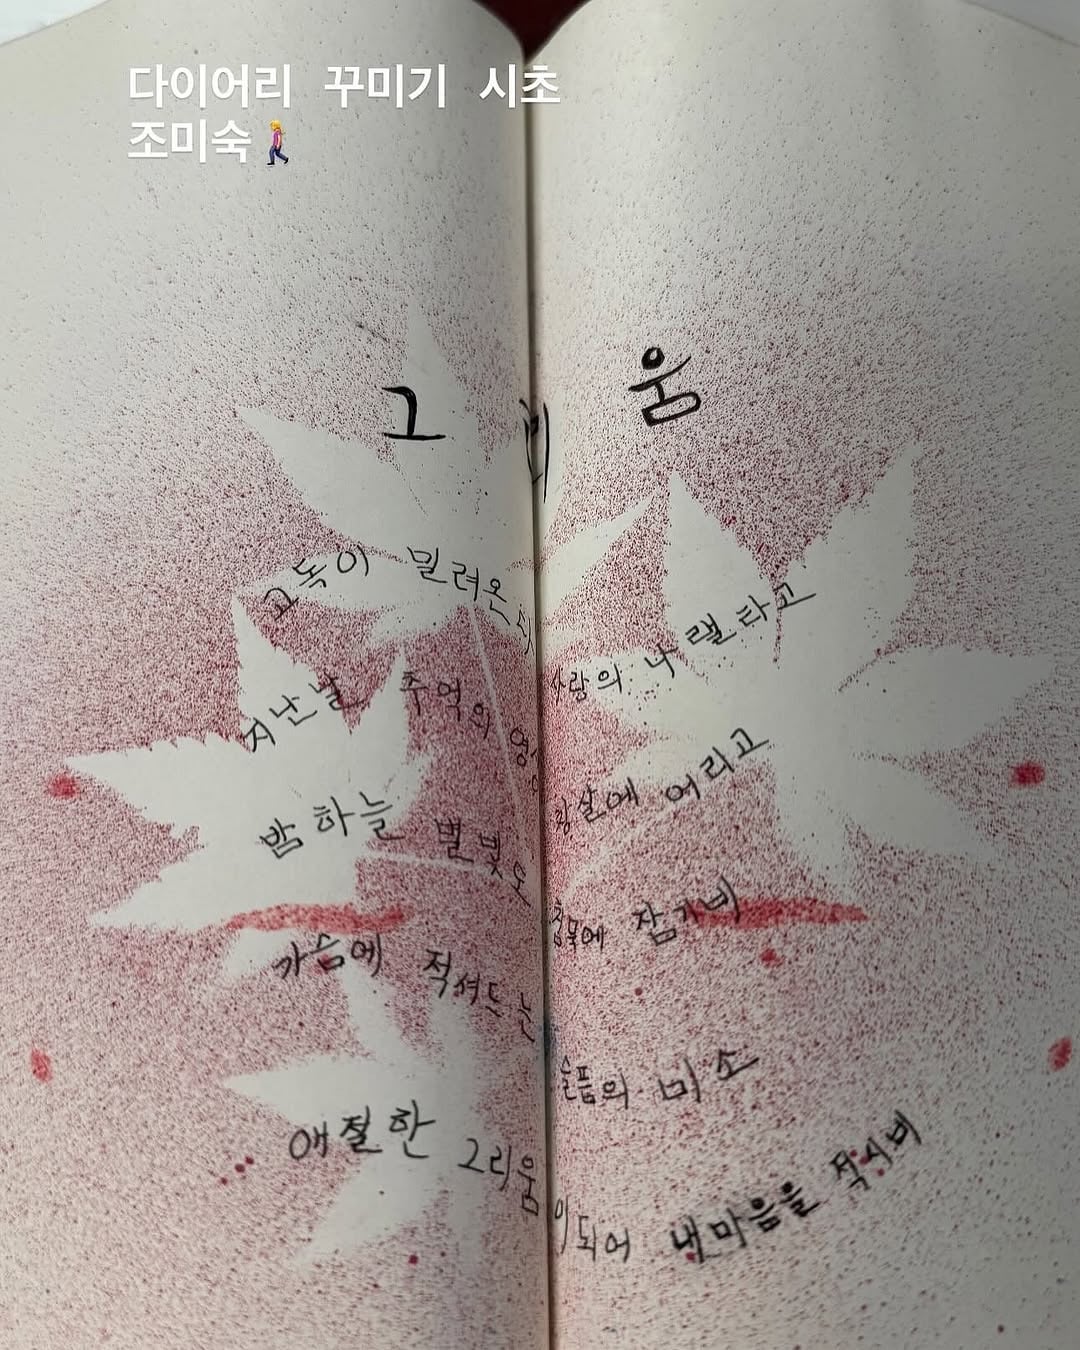 다이어리 꾸미기 시초
조미숙
그리움
고독이 밀려온 사랑의 나랠타고
지난날 추억의 영상 창살에 어리고
밤하늘 별빛도 침묵에 잠기네
가슴에 적셔드는 슬픔의 미소
애절한 그리움이되어 내마음을 적시네